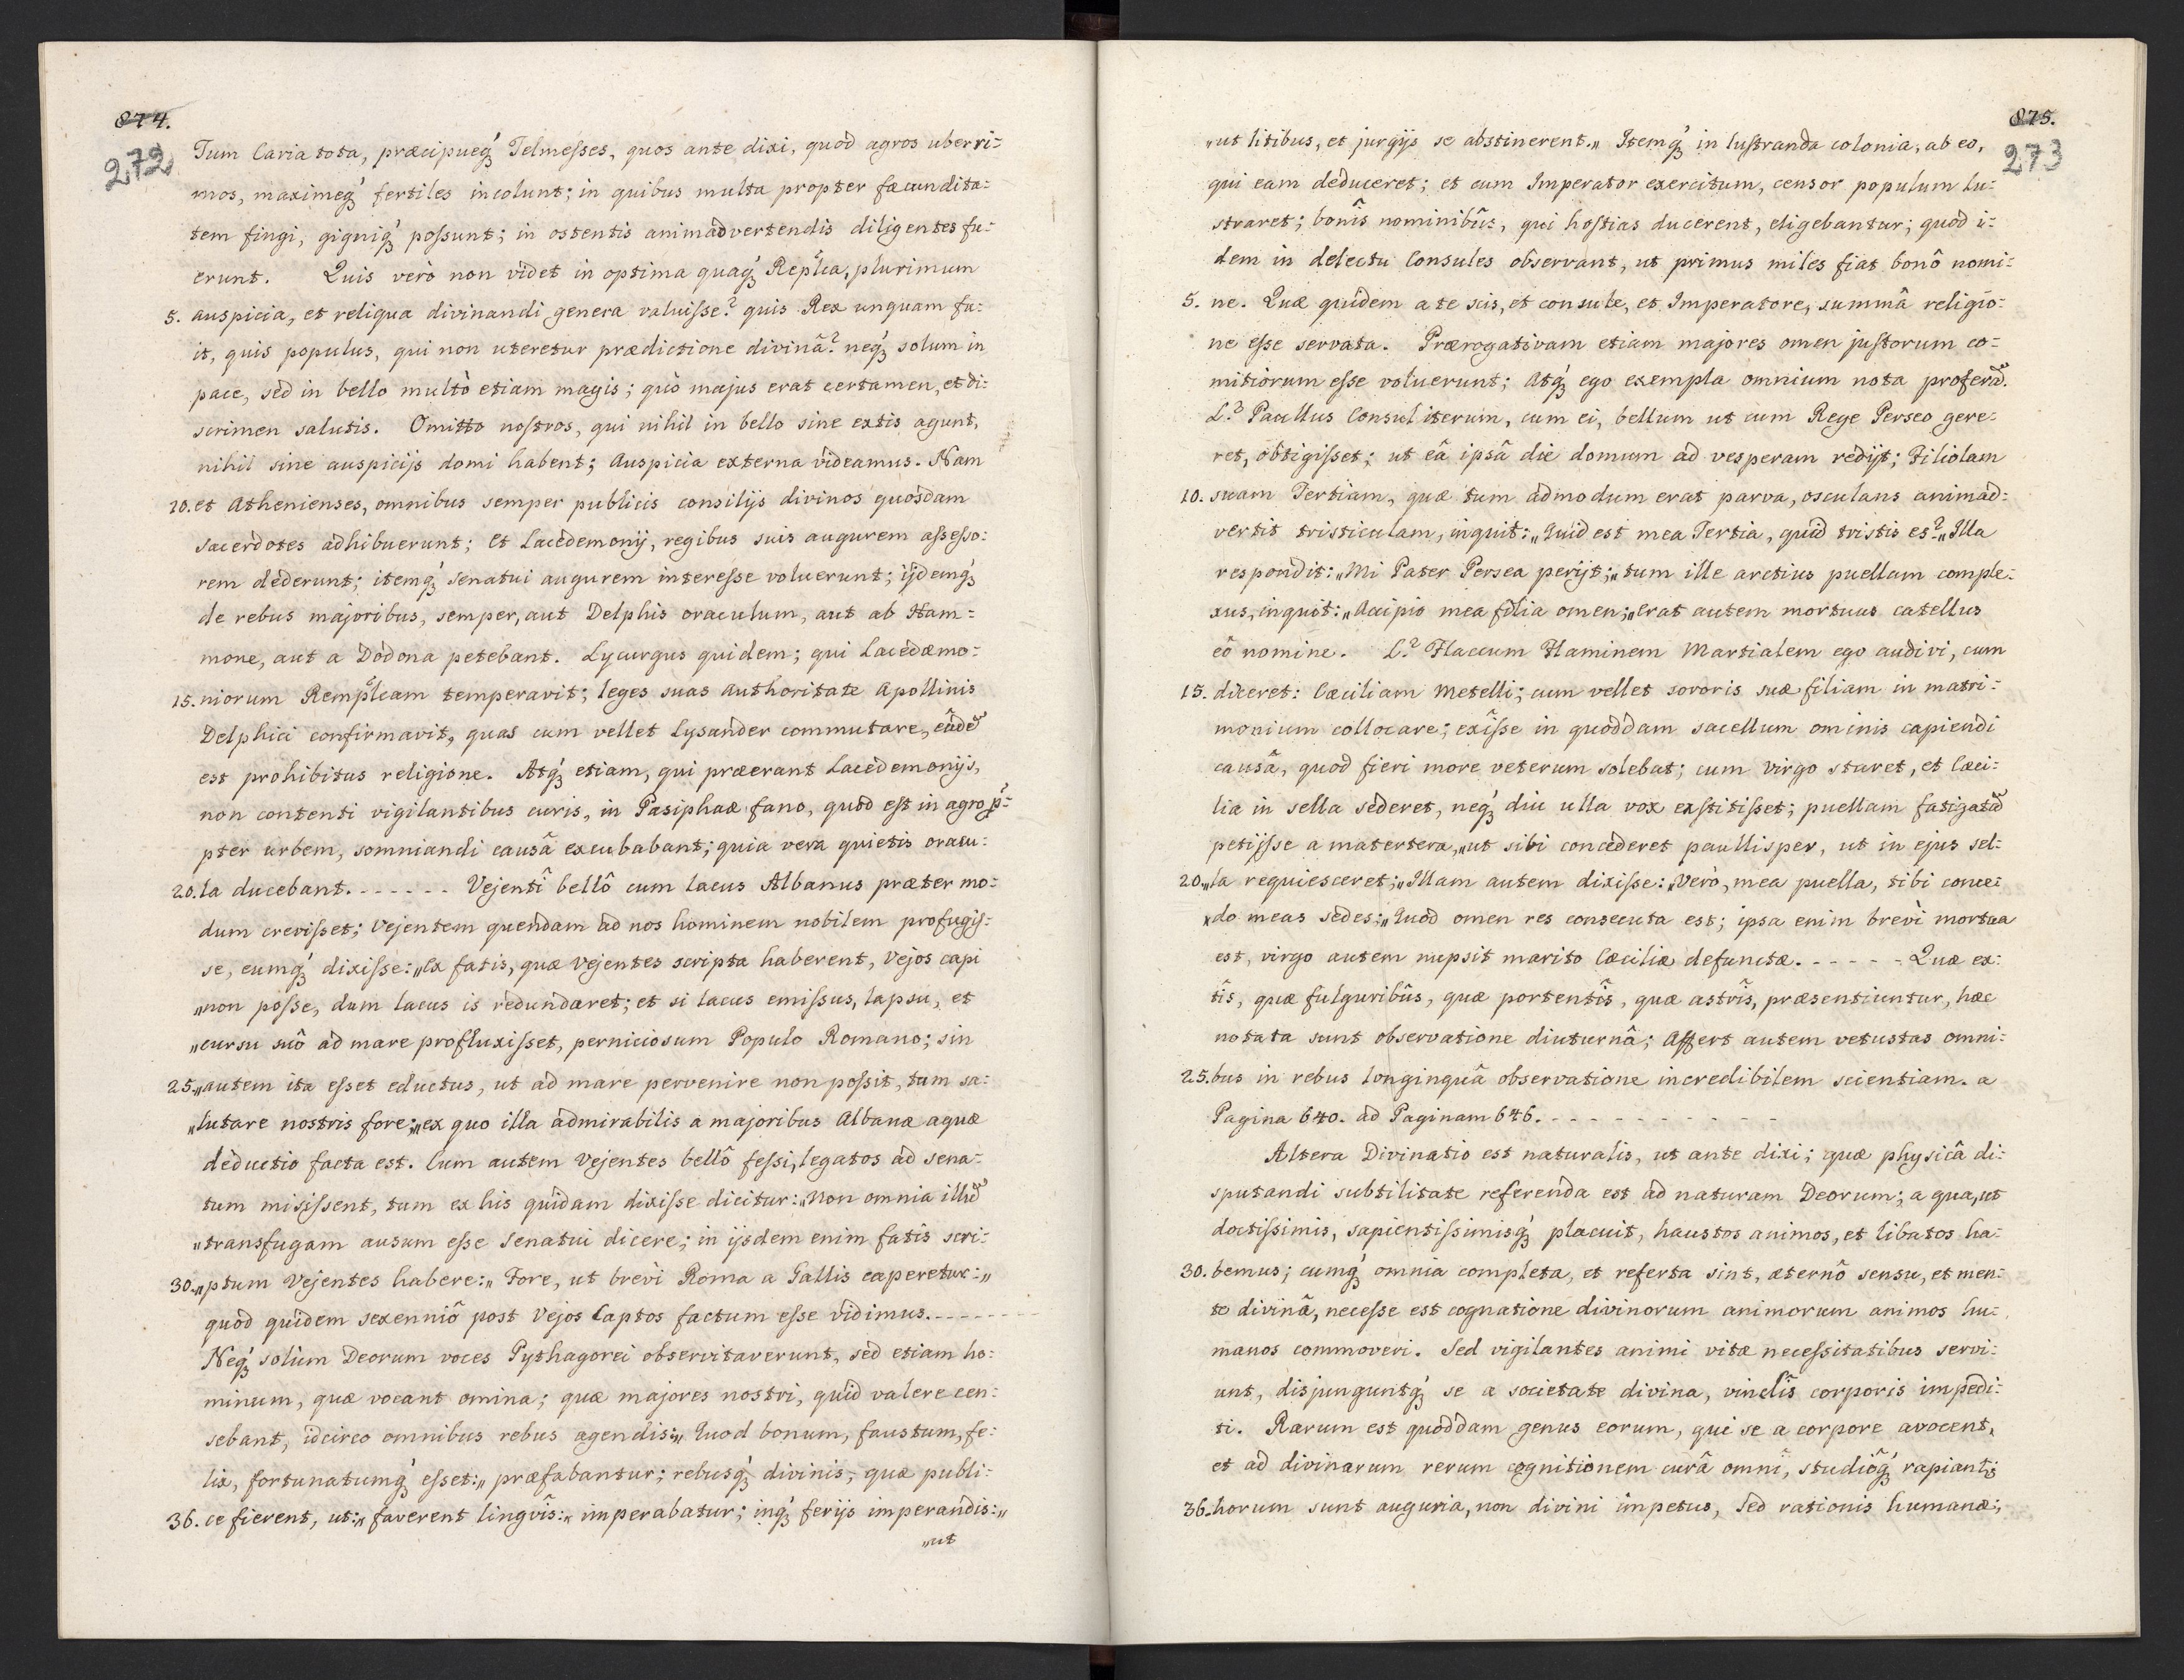 874.
272
Tum Caria tota, præcipueq́ꝫ Telmeſses, quos ante dixi, quod agros uberri=
mos, maximeq́ꝫ fertiles incolunt; in quibus multa propter fæcundita=
tem fingi, gigniq́ꝫ poſsunt; in ostentis animadvertendis diligentes fu=
erunt. Quis verò non videt in optima quaq́ꝫ Replica, plurimum
5. auspicia, et reliqua divinandi genera valuiſse? quis Rex unquam fu=
it, quis populus, qui non uteretur prædictione divinâ? neq́ꝫ solum in
pace, sed in bello multò etiam magis; quò majus erat certamen, et di=
scrimen salutis. Omitto noſtros, qui nihil in bello sine extis agunt,
nihil sine auspicijs domi habent; Auspicia externa videamus. Nam
10. et Athenienses, omnibus semper publicis consilijs divinos quosdam
sacerdotes adhibuerunt; et Lacedemonij, regibus suis augurem aſseſso=
rem dederunt; itemq́ꝫ senatui augurem intereſse voluerunt; ijdemq́ꝫ
de rebus majoribus, semper, aut Delphis oraculum, aut ab Ham=
mone, aut a Dodona petebant. Lycurgus quidem; qui Lacedæmo=
15. niorum Remplicam temperavit; leges suas Authoritate Apollinis
Delphici confirmavit, quas cum vellet Lysander commutare, eâdē
est prohibitus religione. Atq́ꝫ etiam, qui præerant Lacedemonijs,
non contenti vigilantibus curis, in Pasiphaæ fano, quod eſt in agro ꝓ=
pter urbem, somniandi causâ excubabant; quia vera quietis oracu=
20. la ducebant. - - - - - - Vejentî bellô cum lacus Albanus præter mo=
dum creviſset; Vejentem quendam ad nos hominem nobilem profugiſ=
se, eumq́ꝫ dixiſse: „Ex fatis, quæ Vejentes scripta haberent, Vejos capi
„non poſse, dum lacus is redundaret; et si lacus emiſsus, lapsu, et
„cursu suô ad mare profluxiſset, perniciosum Populo Romano; sin
25. „autem ita eſset eductus, ut ad mare pervenire non poſsit, tum sa=
„lutare nostris fore;„ ex quo illa admirabilis a majoribus Albanæ aquæ
deductio facta est. Cum autem Vejentes bellô feſsi, legatos ad sena=
tum misiſsent, tum ex his quidam dixiſse dicitur: „Non omnia illū
„transfugam ausum eſse Senatui dicere; in ijsdem enim fatis scri=
30. „ptum Vejentes habere:„ Fore, ut brevì Roma a Gallis caperetur:„
quòd quidem sexenniô post Vejos Captos factum eſse vidimus. - - - - - -
Neq́ꝫ solùm Deorum voces Pythagorei observitaverunt, sed etiam ho=
minum, quæ vocant omina; quæ majores nostri, quid valere cen=
sebant, idcirco omnibus rebus agendis:„ Quod bonum, faustum, fe=
lix, fortunatumq́ꝫ eſset:„ præfabantur; rebusq́ꝫ divinis, quæ publi=
36. ce fierent, ut:„ faverent lingvîs:„ imperabatur; inq́ꝫ ferijs imperandis:„
„ut
875.
273
„ut litibus, et jurgijs se abstinerent.„ Itemq́ꝫ in luſtranda colonia, ab eo,
qui eam deduceret; et cum Imperator exercitum, censor populum lu=
straret; bonîs nominibûs, qui hoſtias ducerent, eligebantur; quod i=
dem in delectu Consules observant, ut primus miles fiat bonô nomi=
5. ne. Quæ quidem a te scis, et consule, et Imperatore, summâ religio=
ne eſse servata. Prærogativam etiam majores omen juſtorum co=
mitiorum eſse voluerunt; Atq́ꝫ ego exempla omnium nota proferā.
L.? Paullus Consul iterum, cum ei, bellum ut cum Rege Perseo gere=
ret, obtigiſset; ut eâ ipsâ die domum ad vesperam redijt; Filiolam
10. suam Tertiam, quæ tum admodum erat parva, osculans animad=
vertit tristiculam, inquit: „Quid est mea Tertia, quid tristis es?„ Illa
respondit: „Mi Pater Persea perijt;„ tum ille arctius puellam comple=
xus, inquit: „Accipio mea filia omen;„ erat autem mortuus catellus
eô nomine. L.? Flaccum Flaminem Martialem ego audivi, cum
15. diceret: Cæciliam Metelli; cum vellet sororis suæ filiam in matri=
monium collocare; exîſse in quoddam sacellum ominis capiendi
causâ, quod fieri more veterum solebat; cum Virgo staret, et Cæci=
lia in sella sederet, neq́ꝫ diu ulla vox exstitiſset; puellam fatigatā
petijſse a matertera, „ut sibi concederet paullisper, ut in ejus sel=
20. „la requiesceret;„ Illam autem dixiſse: „Verò, mea puella, tibi conce=
„do meas sedes;„ Quod omen res consecuta est; ipsa enim brevì mortua
est, virgo autem nupsit marito Cæciliæ defunctæ. - - - - - Quæ ex=
tîs, quæ fulguribûs, quæ portentîs, quæ astrîs, præsentiuntur, hæc
notata sunt observatione diuturnâ; Affert autem vetustas omni=
25. bus in rebus longinquâ observatione incredibilem scientiam. a
Pagina 640. ad Paginam 646. - - - - - - - - - - - -
Altera Divinatio est naturalis, ut ante dixi; quæ physicâ di=
sputandi subtilitate referenda est ad naturam Deorum; a qua, ut
doctiſsimis, sapientiſsimisq́ꝫ placuit, haustos animos, et libatos ha=
30. bemus; cumq́ꝫ omnia completa, et referta sint, æternô sensu, et men=
te divinâ, neceſse est cognatione divinorum animorum animos hu=
manos commoveri. Sed vigilantes animi vitæ neceſsitatibus servi=
unt, disjunguntq́ꝫ se a societate divina, vinclîs corporis impedi=
ti. Rarum est quoddam genus eorum, qui se a corpore avocent,
et ad divinarum rerum cognitionem curâ omnî, studiôq́ꝫ rapiant;
36. horum sunt auguria, non divini impetus, sed rationis humanæ;